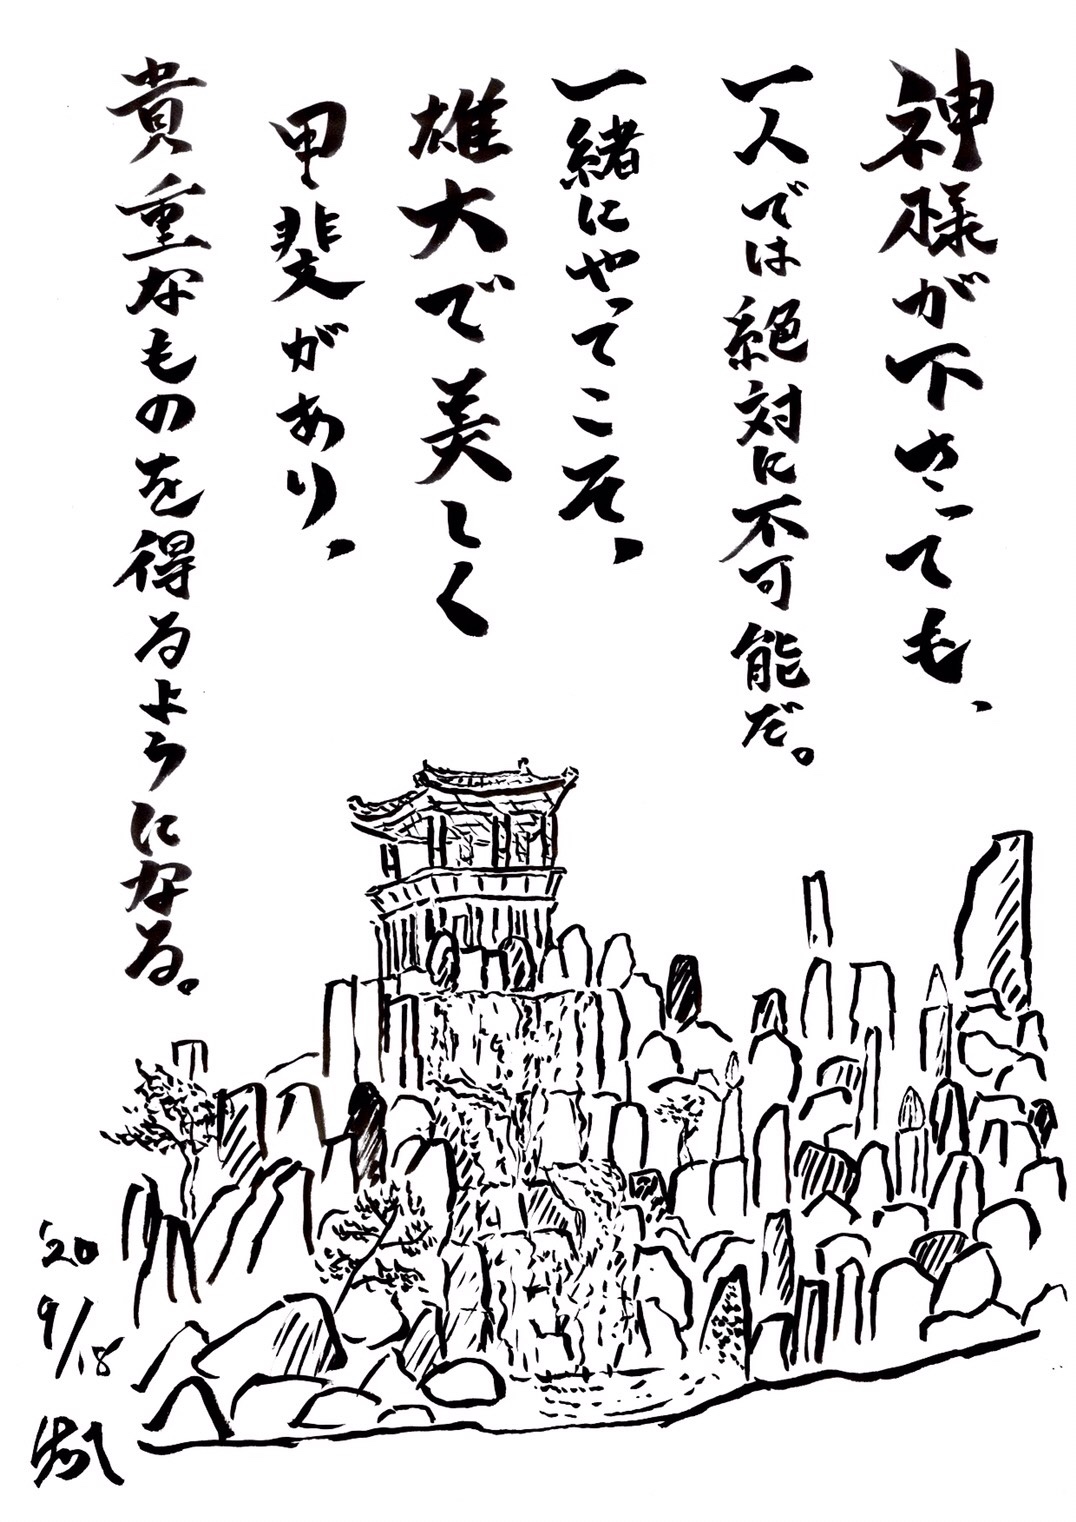 神様が下さっても、
一人では絶対に不可能だ。
一緒にやってこそ、
雄大で美しく
甲斐があり、
貴重なものを得るようになる。
'20
9/18